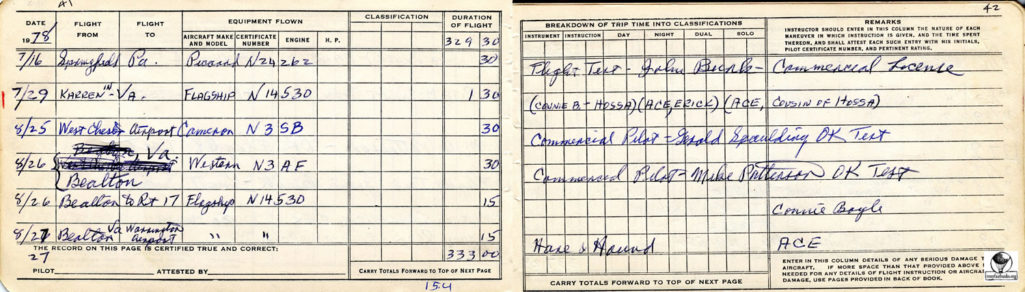 DATE
1978
FLIGHT FROM
FLIGHT TO
EQUIPMENT FLOWN
AIRCRAFT MAKE AND MODEL
CERTIFICATE NUMBER
ENGINE
H. P.
CLASSIFICATION
DURATION OF FLIGHT
329 30
7/16 Springfield Pa. Piccard N2426Z 30
7/29 KARREN IN - VA. FLAGSHIP N14530 1 30
8/25 West Chester Airport Cameron N3SB 30
8/26 Bealton, Va. Western N3AF 30
Bealton
8/26 Bealton to Rt 17 Flagship N14530 15
8/27 Bealton Va Warrington Airport " " 15
THE RECORD ON THIS PAGE IS CERTIFIED TRUE AND CORRECT:
27
333 00
PILOT ATTESTED BY CARRY TOTALS FORWARD TO TOP OF NEXT PAGE
154
42
BREAKDOWN OF TRIP TIME INTO CLASSIFICATIONS
INSTRUMENT INSTRUCTION DAY NIGHT DUAL SOLO
REMARKS
INSTRUCTOR SHOULD ENTER IN THIS COLUMN THE NATURE OF EACH
MANEUVER IN WHICH INSTRUCTION IS GIVEN, AND THE TIME SPENT
THEREON, AND SHALL ATTEST EACH SUCH ENTRY WITH HIS INITIALS,
PILOT CERTIFICATE NUMBER, AND PERTINENT RATING.
Flight Test - John - Commercial License
(CONNIE B - HOSSA) (ACE, ERICK) (ACE, COUSIN OF HOSSA)
Commercial Pilot - Gerold Spaulding OK Test
Commerical Pilot - Mike Patterson OK Test
Connie Boyle
Hare & Hound ACE
CARRY TOTALS FORWARD TO TOP OF NEXT PAGE
ENTER IN THIS COLUMN DETAILS OF ANY SERIOUS DAMAGE
AIRCRAFT. IF MORE SPACE THAN THAT PROVIDED ABOVE
NEEDED FOR ANY DETAILS OF FLIGHT INSTRUCTION OR
DAMAGE, USE PAGES PROVIDED IN BACK OF BOOK.